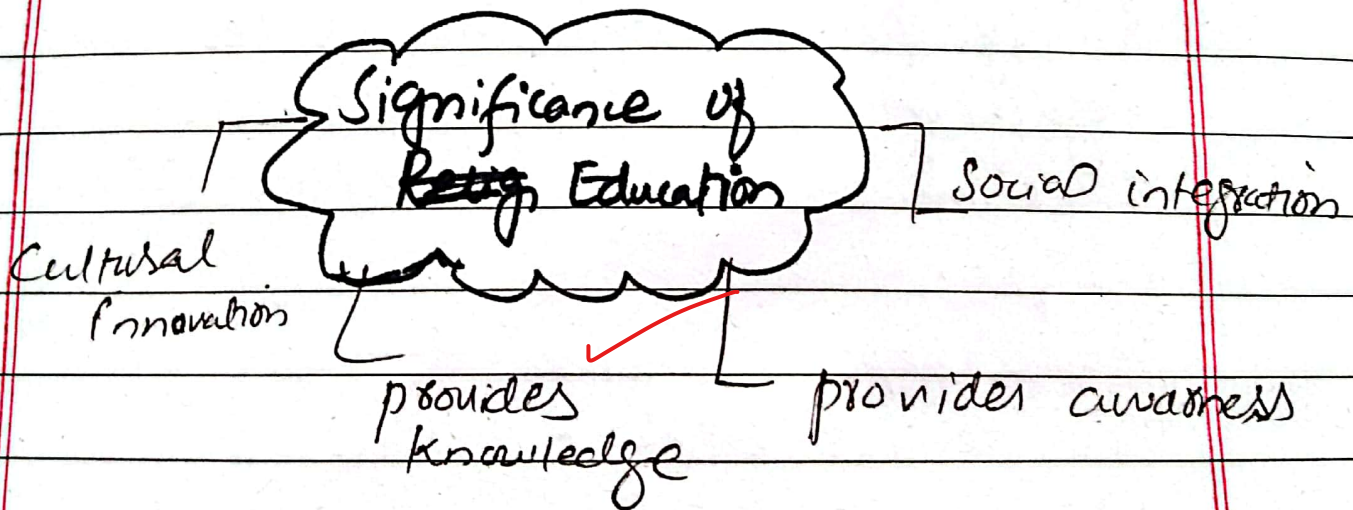 Significance of
Education
Social integration
Cultural
Innovation
provides
knowledge
provides awarness